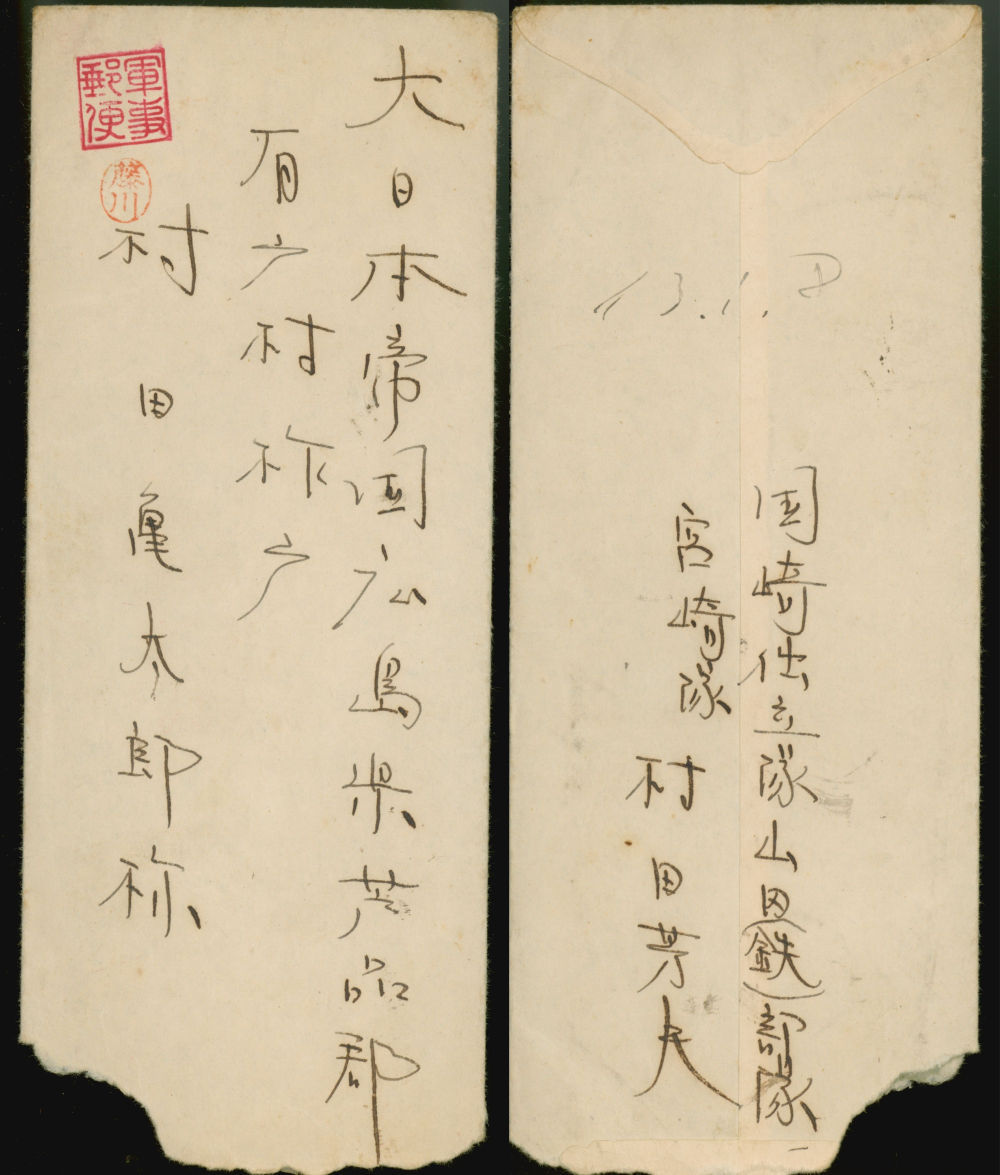 大日本帝国広島県芦品郡
有戸村柞戸
軍事
郵便
藤川
村田亀太郎様
13.1.8
国崎
立隊山田(鉄)部隊
宮崎隊 村田芳夫